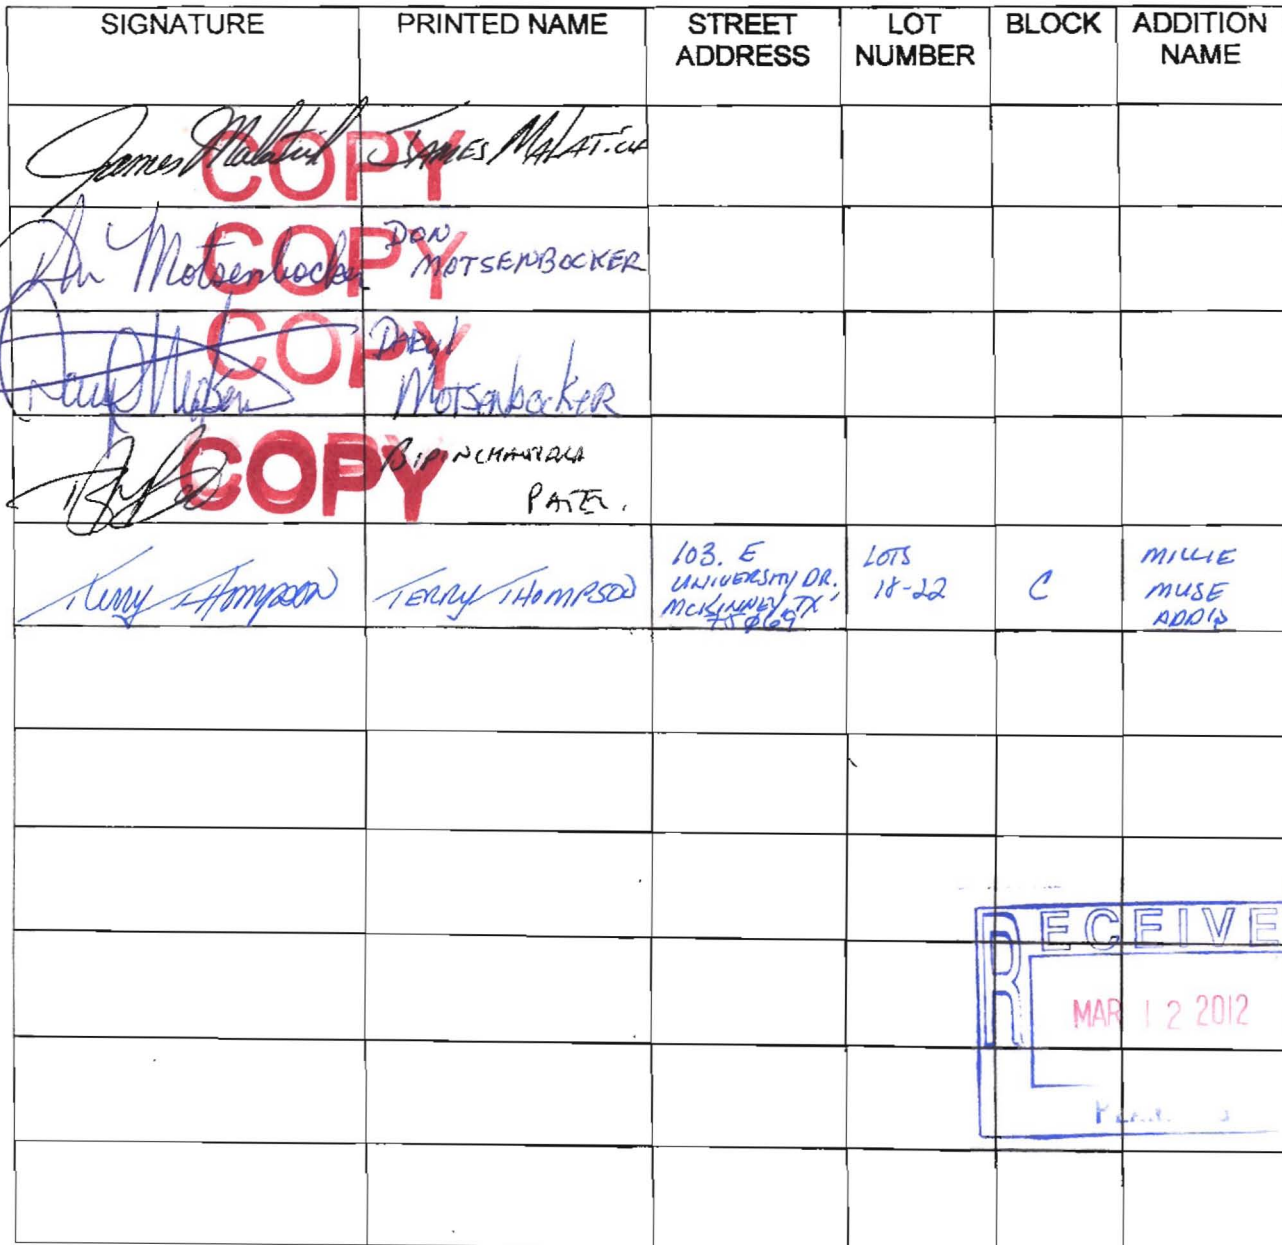 SIGNATURE PRINTED NAME STREET ADDRESS LOT NUMBER BLOCK ADDITION NAME
James Malatich JAMES MALATICH
COPY
Don Motsenbocker DON
MOTSENBOCKER
COPY
DARYL
MOTSENBOCKER
COPY
BIPINCHANDRA
PATEL.
COPY
Terry Thompson TERRY THOMPSON
103. E
UNIVERSITY DR.
MCKINNEY, TX
75069
LOTS
18-22
C
MILLIE
MUSE
ADD'N
RECEIVE
MAR 12 2012